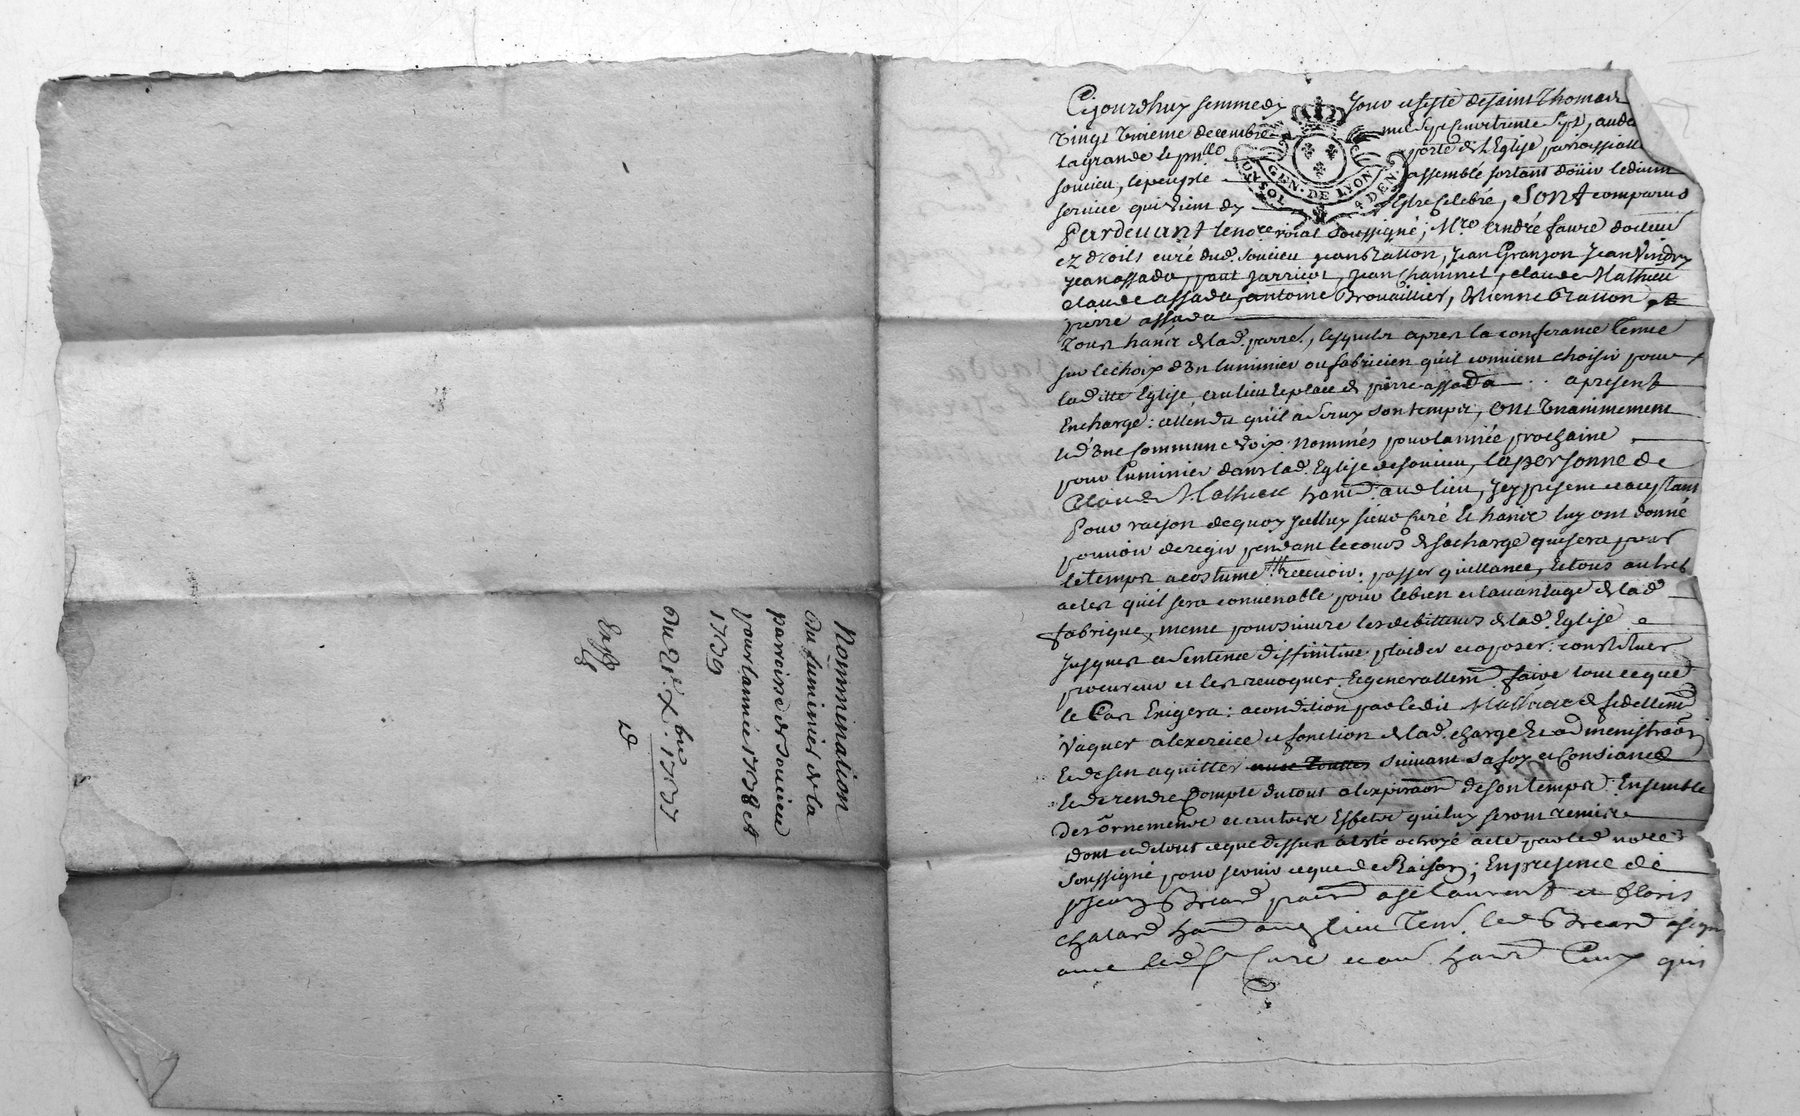 Nommination
du luminier de la
parroisse de Soucieu
pour lannée 1738 et
1739
du 21e Xbre 1737
Exp
Cejourdhuy semmedy jour et feste de saint Thomas
vingt unieme decembre mil sept cent trente sept, au
la grande et pnlle porte de l'Eglise parroissialle
Soucieu, le peuple assemblé sortant d'ouir le divin
service qui vient dy Estre Celebré, Sont comparus
Pardevant le nore roial soussigné, Mre André faure docteur
ez droits curé dud. Soucieu Jean Granjon Jean Vindry
Jean assada, Jean Chaumet, claude Mathieu
claude assada, antoine Brouaillier, Etienne et
pierre assada
Tous hants de lad. parre., lesquels apres la conferance tenue
sur le choix d'un luminier ou fabricien qu'il convient choisir pour
laditte Eglise, au lieu et place de pierre assada apresent
Encharge: attendu qu'il a son temps, Ont unanimement
et d'une commune voix nommés pour lannée prochaine
pour luminier dans lad. Eglise de Soucieu, la personne de
Claude Mathieu hant aud lieu, Icy present et aceptant
Pour raison dequoy sieur Curé et hants luy ont donné
pouvoir de regir pendant le cours de sa charge qui sera pour
le temps acostumé recevoir, passer quittance, et tous autres
actes qu'il sera convenable pour le bien et lavantage de lad
fabrique, meme poursuivre les debitteurs de lad. Eglise
Jusques a Sentence diffinitive plaider et oposer: constituer
procureur et les revoquer Et generallemt faire tout ceque
le Cas Exigera: a condition par ledit Mathieu de fidellemt
Vaquer a lexercice et fonction de lad. charge et administraon
Et de sen aquitter suivant sa foy et Consiance
Et de rendre Compte du tout a lexpiraon de son temps Ensemble
des ornements et autres Effets qui luy seront remis
dont et de tout ceque dessus a Esté octroyé acte par led nore
Soussigné pour servir ceque de Raison; En presence de
Jean Briard et floris
chatard hant aud lieu Tem. led Briard a signé
avec led Sr Curé et hants Ceux qui
GEN. DE LYON
UN SOL 4 DEN.